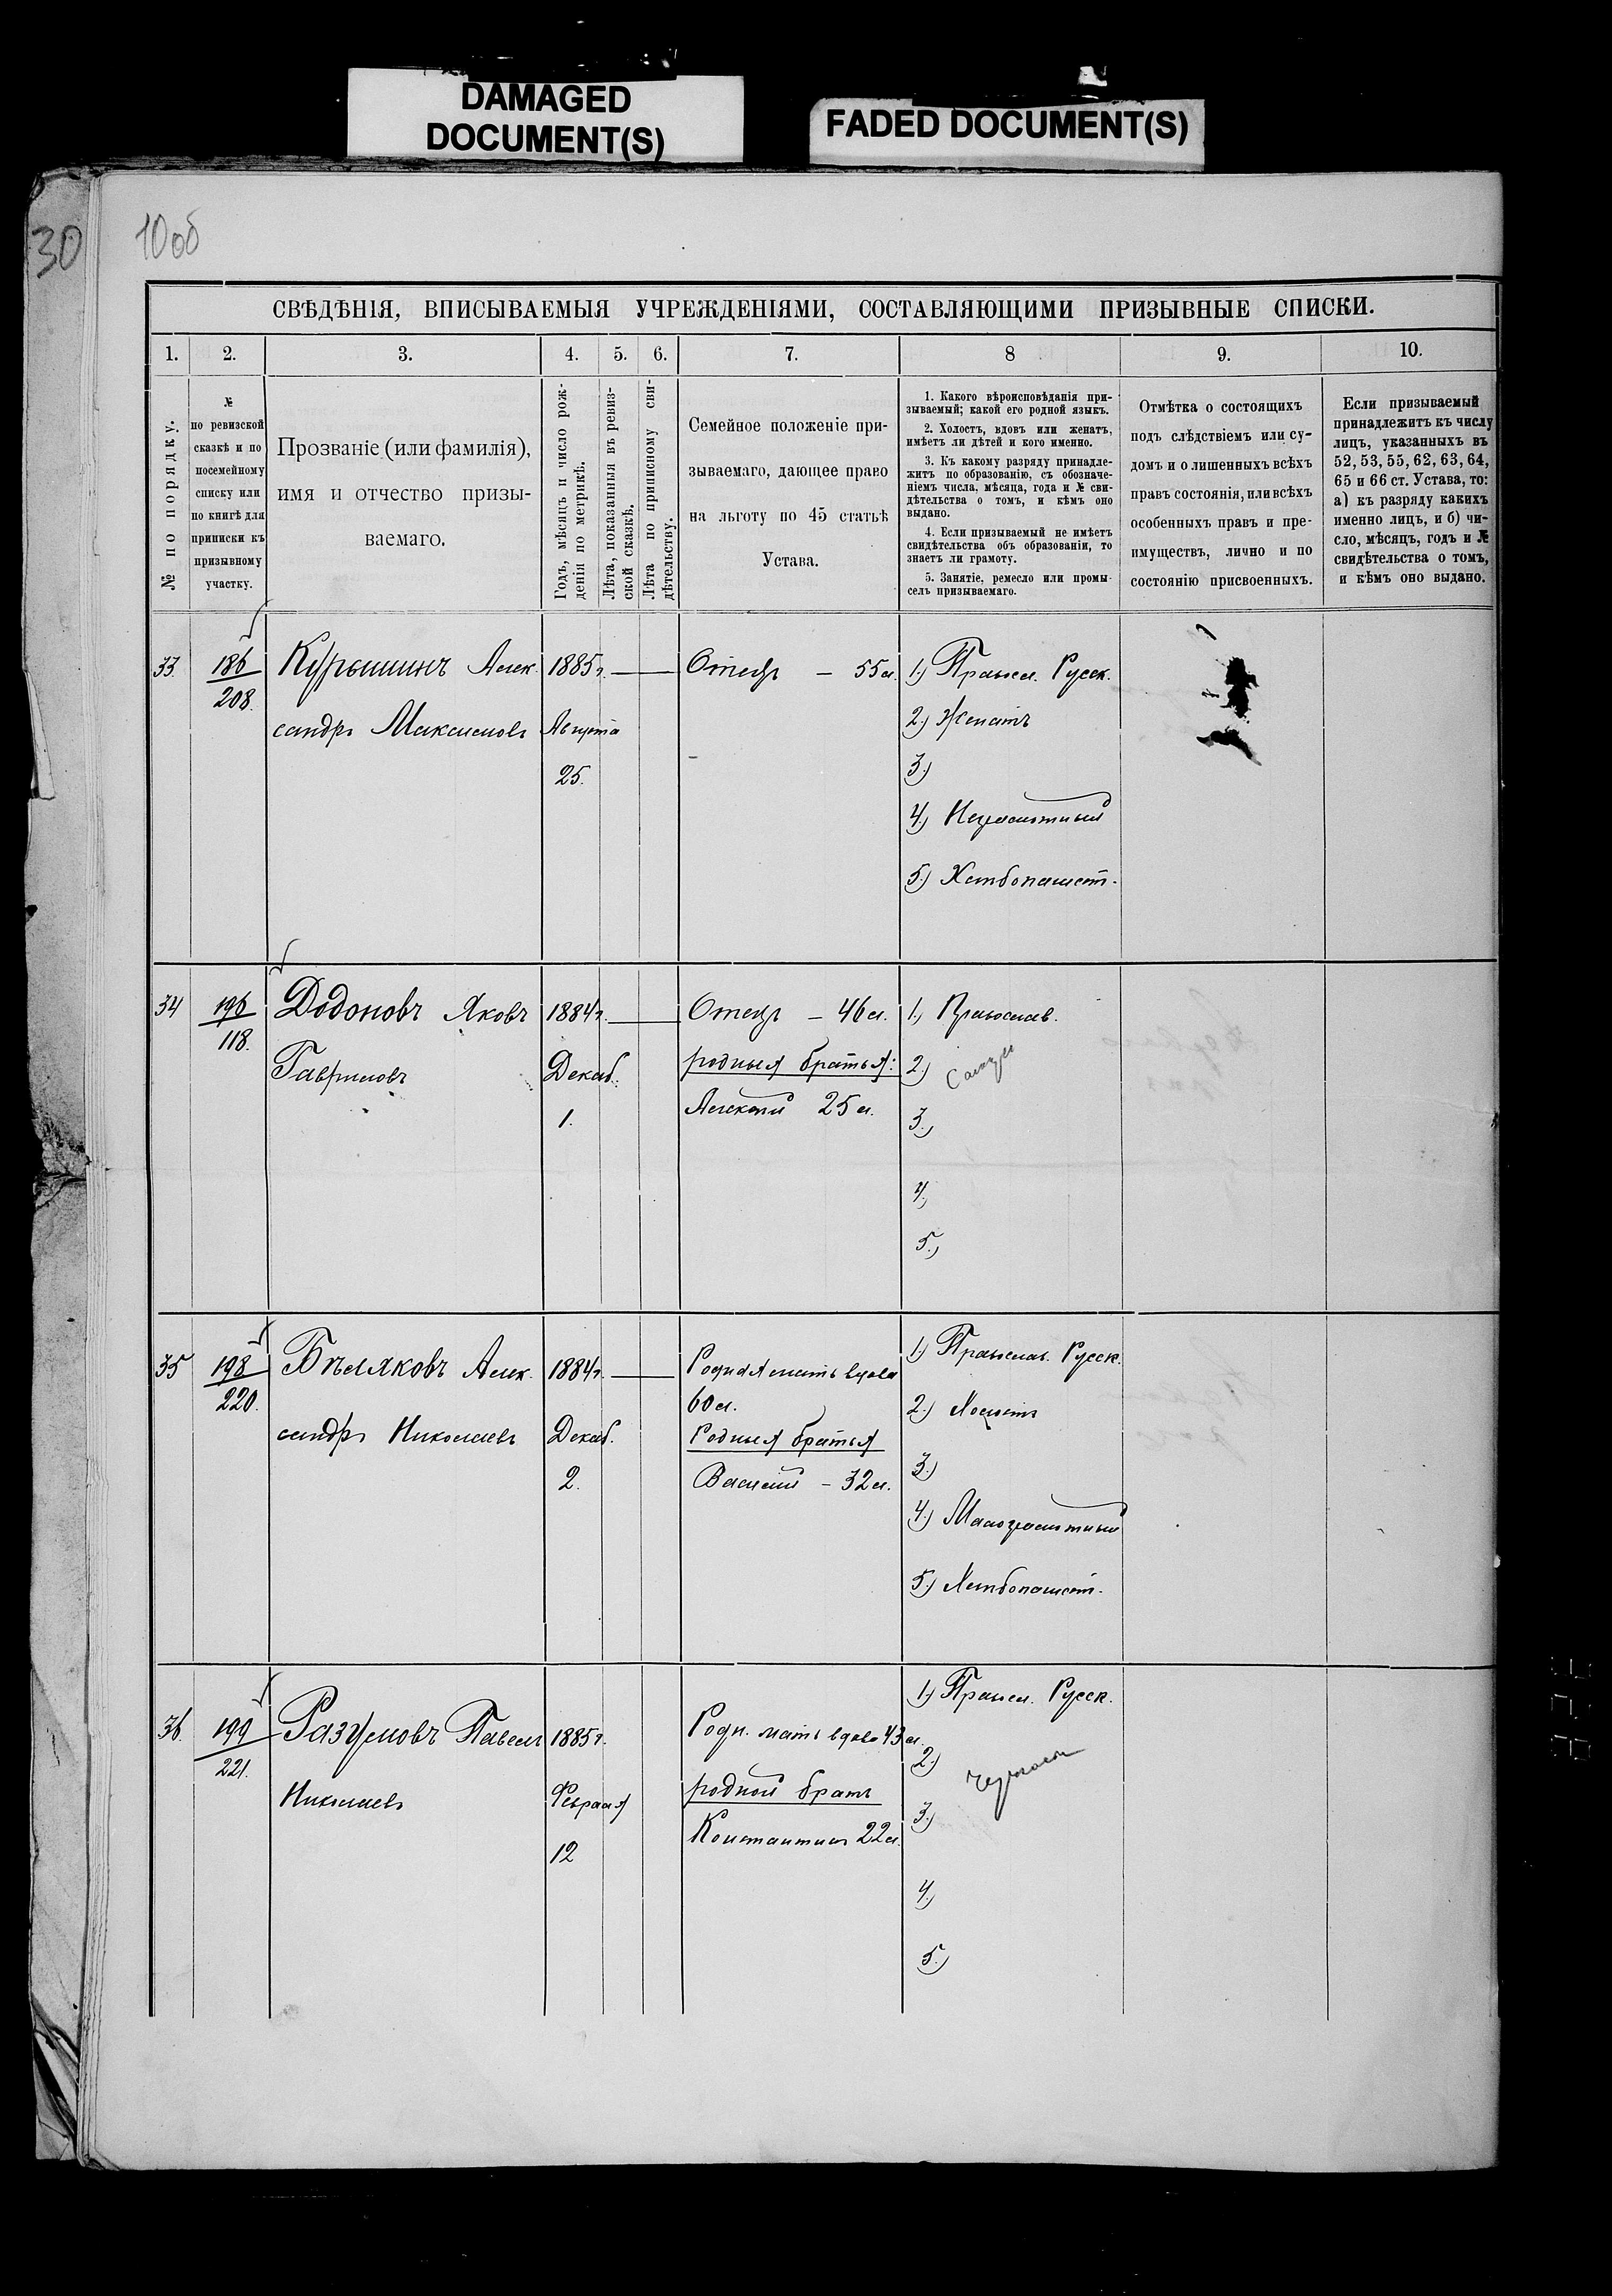 DAMAGED
DOCUMENT(S)
FADED DOCUMENT(S)
30
10об
СВѢДѢНІЯ, ВПИСЫВАЕМЫЯ УЧРЕЖДЕНІЯМИ, СОСТАВЛЯЮЩИМИ ПРИЗЫВНЫЕ СПИСКИ.
1. 2. 3. 4. 5. 6. 7. 8 9. 10.
№ по порядку.
№
по ревизской
сказкѣ и по
посемейному
списку или
по книгѣ для
приписки къ
призывному
участку.
Прозваніе (или фамилія),
имя и отчество призы-
ваемаго.
Годъ, мѣсяцъ и число рож-
денія по метрикѣ.
Лѣта, показанныя въ ревиз-
ской сказкѣ.
Лѣта по приписному сви-
дѣтельству.
Семейное положеніе при-
зываемаго, дающее право
на льготу по 45 статьѣ
Устава.
1. Какого вѣроисповѣданія при-
зываемый; какой его родной языкъ.
2. Холостъ, вдовъ или женатъ,
имѣетъ ли дѣтей и кого именно.
3. Къ какому разряду принадле-
житъ по образованію, съ обозначе-
ніемъ числа, мѣсяца, года и № сви-
дѣтельства о томъ, и кѣмъ оно
выдано.
4. Если призываемый не имѣетъ
свидѣтельства объ образованіи, то
знаетъ ли грамоту.
5. Занятіе, ремесло или промы-
селъ призываемаго.
Отмѣтка о состоящихъ
подъ слѣдствіемъ или су-
домъ и о лишенныхъ всѣхъ
правъ состоянія, или всѣхъ
особенныхъ правъ и пре-
имуществъ, лично и по
состоянію присвоенныхъ.
Если призываемый
принадлежитъ къ числу
лицъ, указанныхъ въ
52, 53, 55, 62, 63, 64,
65 и 66 ст. Устава, то:
а) къ разряду какихъ
именно лицъ, и б) чи-
сло, мѣсяцъ, годъ и №
свидѣтельства о томъ,
и кѣмъ оно выдано.
33.
186
208.
Курышинъ Алек-
сандръ Максимовъ
1885 г.
Августа
25.
Отецъ – 55 л.
1.) Правосл. Русск.
2.) Женатъ
3.)
4.) Неграмотный
5.) Хлѣбопашест.
34
196
118.
Додоновъ Яковъ
Гавриловъ
1884 г.
Декаб.
1.
Отецъ – 46 л.
родныя братья:
Алексѣй 25 л.
1.) Православ.
2.)
3.)
4.)
5.)
35
198
220.
Бѣляковъ Алек-
сандръ Николаевъ
1884 г.
Декаб.
2.
Родная мать вдова
60 л.
Родныя братья
Василій – 32 л.
1.) Православ. Русск.
2.) Холостъ
3.)
4.) Малограмотный
5.) Хлѣбопашест.
36.
199
221.
Разумовъ Павелъ
Николаевъ
1885 г.
Февраля
12
Родн. мать вдова 43 л.
родной братъ
Константинъ 22 л.
1.) Правосл. Русск.
2.)
3.)
4.)
5.)